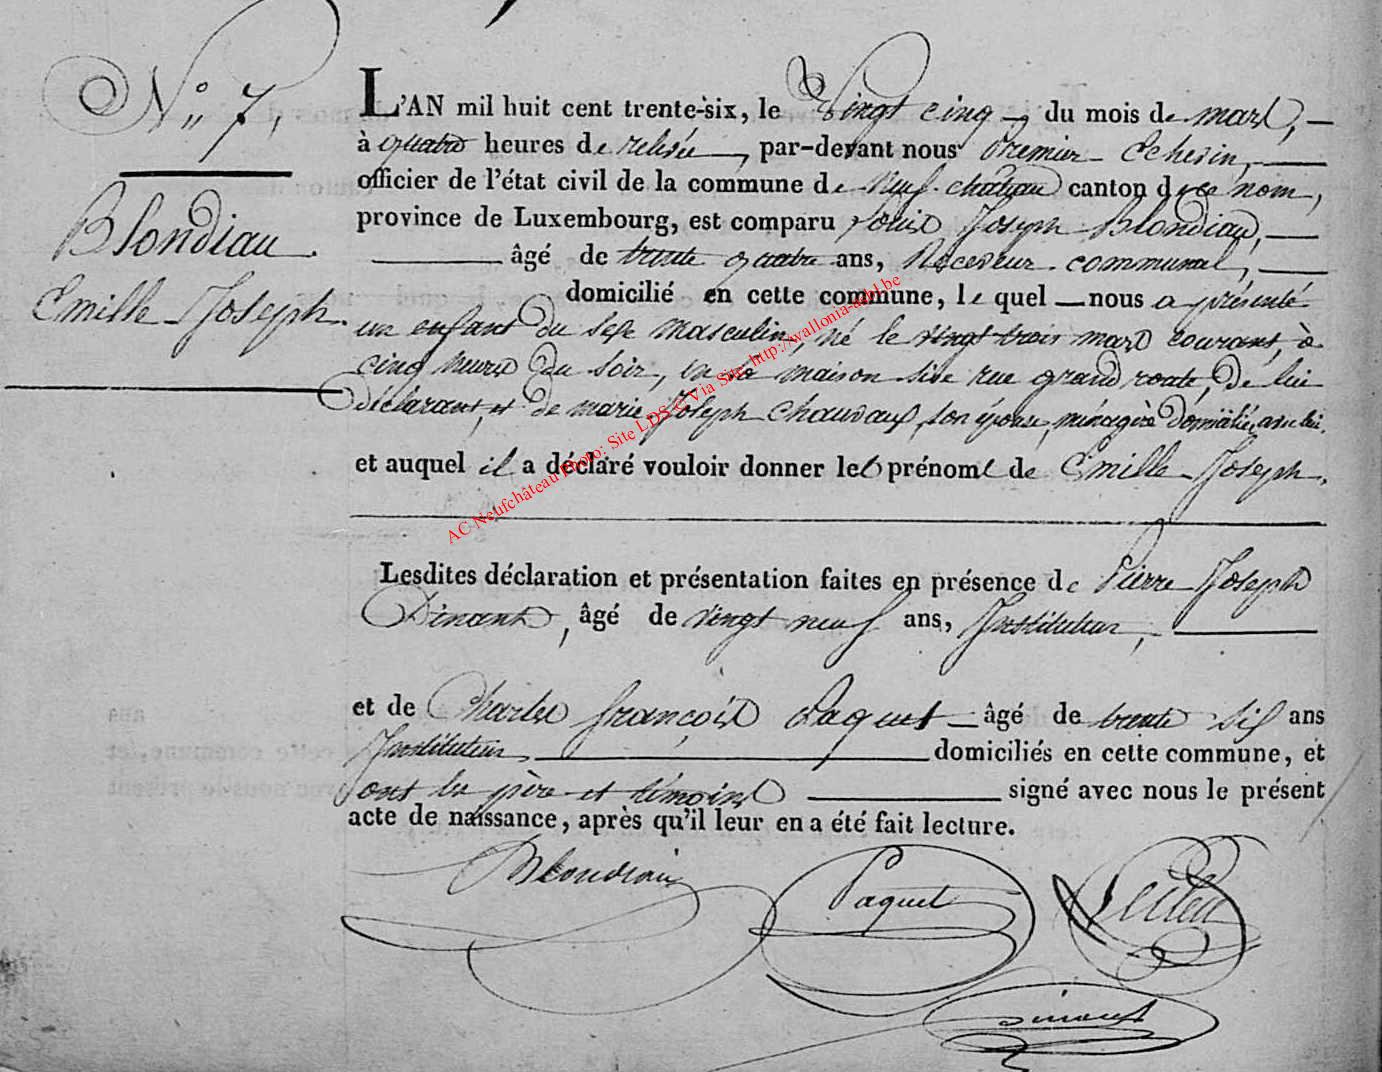 N.° 7,
Blondiau.
Emille Joseph.
L'AN mil huit cent trente-six, le Vingt cinq du mois de mars,
à quatre heures de relevée, par-devant nous Premier Echevin,
officier de l'état civil de la commune de Neufchateau canton de ce nom,
province de Luxembourg, est comparu Louis Joseph Blondiau,
âgé de trente quatre ans, Receveur communal,
domicilié en cette commune, le quel nous a présenté
un enfant du sexe masculin, né le vingt trois mars courant, à
cinq heures du soir, en sa maison sise rue grand route, de lui
déclarant, et de marie Joseph Chauvaux, son épouse, ménagère domiciliée avec lui,
et auquel il a déclaré vouloir donner les prénoms de Emille Joseph.
Lesdites déclaration et présentation faites en présence de Pierre Joseph
Dinant, âgé de vingt neuf ans, Instituteur,
et de Charles françois Paquet âgé de trente six ans
Instituteur, domiciliés en cette commune, et
ont les père et témoins signé avec nous le présent
acte de naissance, après qu'il leur en a été fait lecture.
Blondiau Paquet
Dinant
AC Neufchâteau Photo: Site LDS & Via Site: http://wallonia-asbl.be